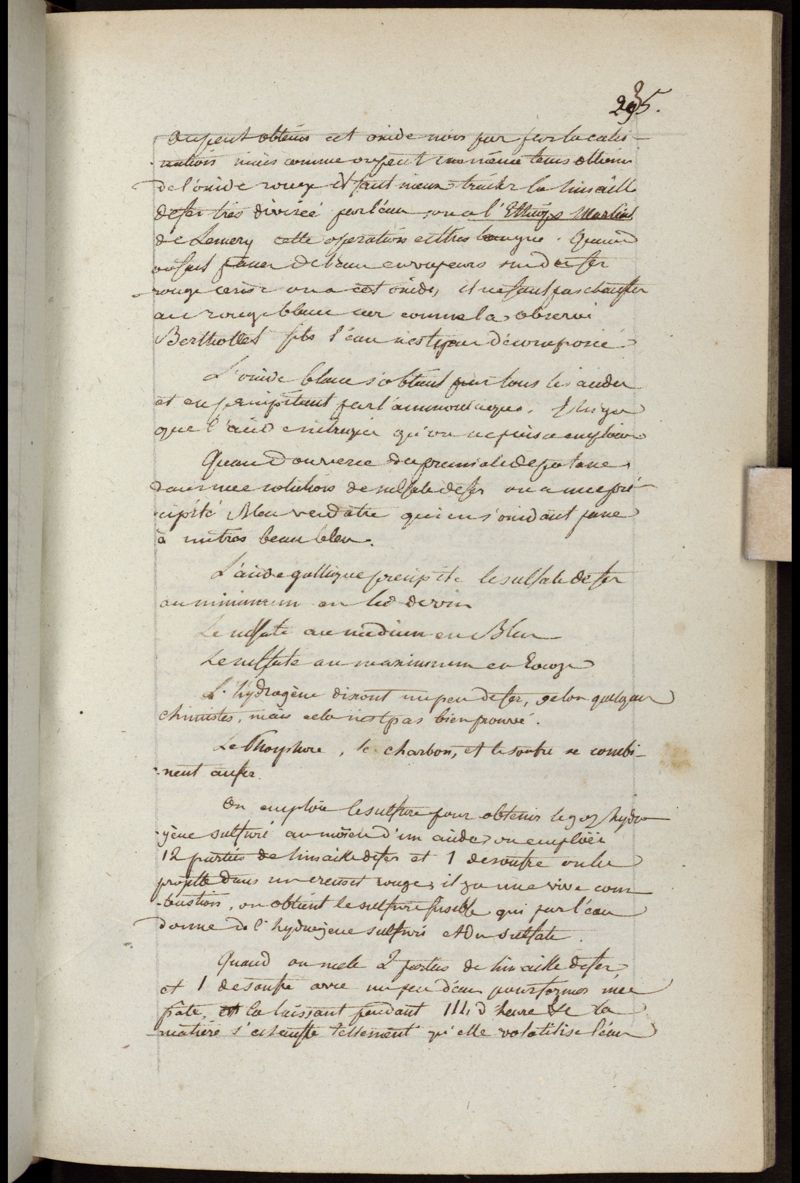 235.
On peut obtenir cet oxide noir par par la calci-
nation mais comme on peut en même tems obtenir
de l'oxide rouge il faut mieux traiter la limaille
de fer très divisée par l'eau, on a l'Ethiops Martial
de Lemery cette opération est très longue. Quand
on fait passer de l'eau en vapeurs sur de fer
rouge cerise on a cet oxide, il ne faut pas chauffer
au rouge blanc car comme l'a observé
Berthollet fils l'eau n'est pas décomposée
L'oxide blanc s'obtient par tous les acides
et en precipitant par l'ammoniaque. Il n'y a
que l'acide nitrique qu'on ne puisse employer
Quand on verse du prussiate de potasse
dans une solution de sulfate de fer on a un pré-
cipité Bleu verdatre qui en s'oxidant passe
à un très beau bleu.
L'acide gallique precipite le sulfate de fer
au minimum en lie de vin
Le sulfate au medium en Bleu
Le sulfate au maximum en Rouge
L'hydrogène dissout un peu de fer, selon quelques
chimistes, mais cela n'est pas bien prouvé.
Le Phosphore, le charbon, et le soufre se combi-
nent au fer.
On emploie le sulfure pour obtenir le gaz hydro
gène sulfuré au moïen d'un acide, on emploïe
12 parties de limaille de fer et 1 de soufre on les
projette dans un creuset rouge, il y a une vive com
bustion, on obtient le sulfure fusible qui par l'eau
donne de l'hydrogène sulfuré et du sulfate.
Quand on mele 2 parties de limaille de fer
et 1 de soufre avec un peu d'eau pour former une
pâte, la laissant pendant d'heure la
matière s'echauffe tellement qu'elle volatilise l'eau